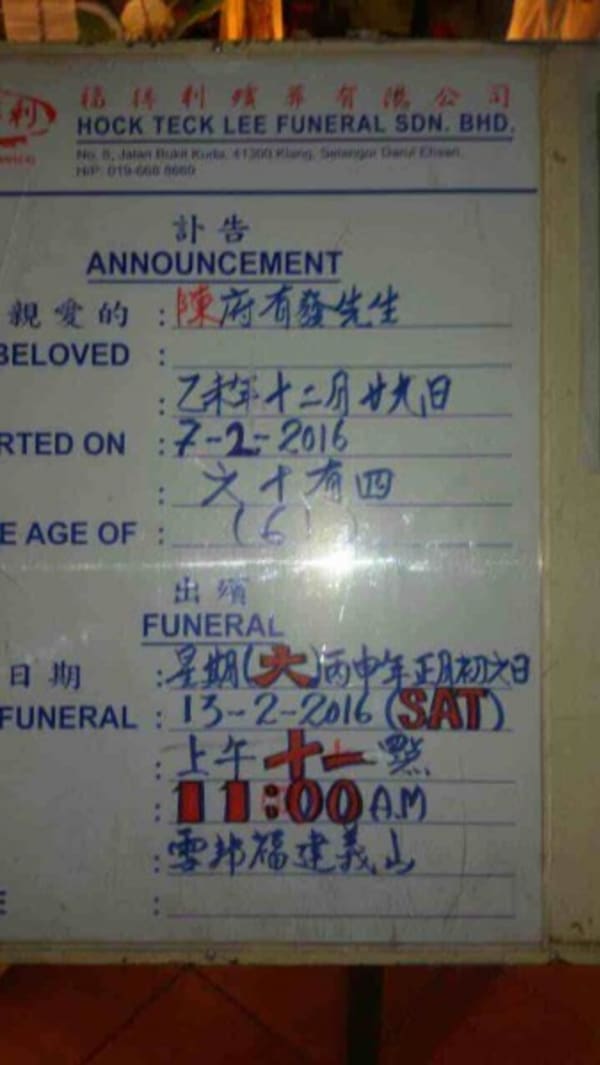 利
福得利殯葬有限公司
HOCK TECK LEE FUNERAL SDN. BHD.
No. 8, Jalan Bukit Kuda, 41300 Klang, Selangor Darul Ehsan.
H/P: 019-668 8660
訃告
ANNOUNCEMENT
親愛的 : 陳府有發先生
BELOVED :
: 乙未年十二月廿九日
RTED ON : 7-2-2016
: 六十有四
E AGE OF : (61)
出殯
FUNERAL
日期 : 星期(六)丙申年正月初六日
FUNERAL : 13-2-2016 (SAT)
: 上午十一點
: 11:00 A.M
: 雪邦福建義山
E :